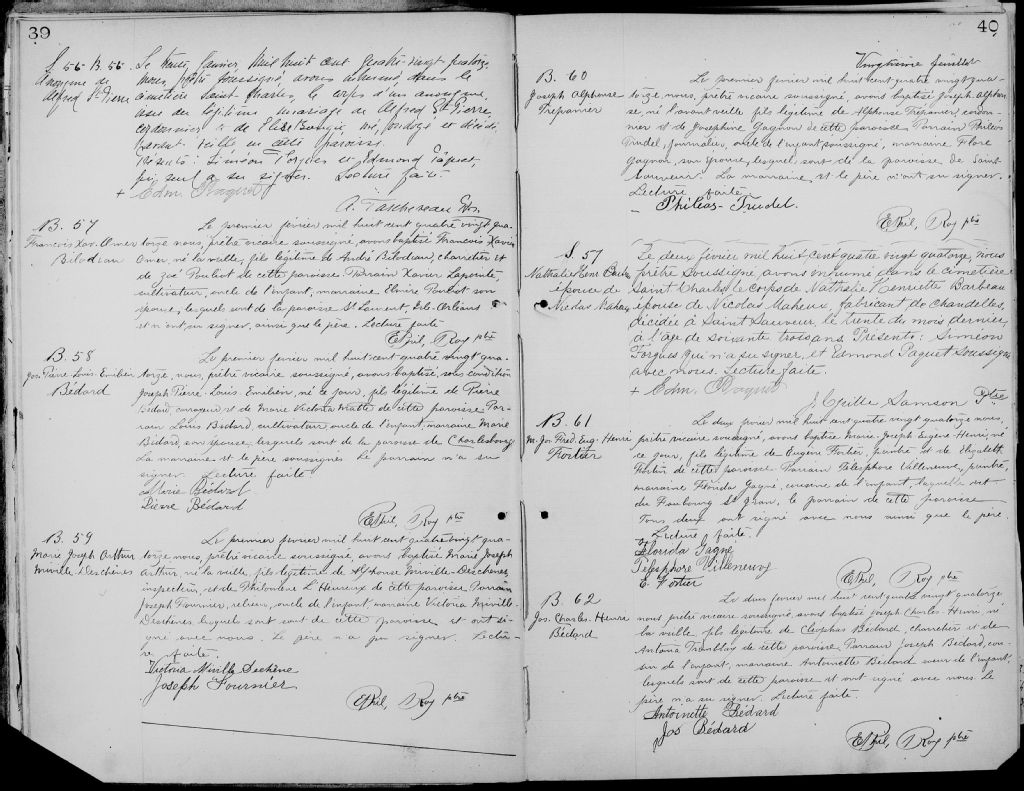 39
S. 56 B. 56.
Anonyme de
Alfred St Pierre
Le trente Janvier Mil huit cent quatre vingt quatorze
nous, prêtre soussigné avons inhumé dans le
cimétière Saint Charles, le corps d'un anonyme,
issu du légitime mariage de Alfred St. Pierre,
cordonnier & de Elise né, ondoyé et décédé
veille en cette paroisse.
Présents: Siméon Forgues et Edmond Paquet,
qui seul a su signer. Lecture faite.
+ Edm. Paquet
A. Taschereau Ptre.
B. 57
François Xav. Omer
Bilodeau
Le premier février mil huit cent quatre vingt qua-
torze nous, prêtre vicaire soussigné, avons baptisé François Xavier
Omer, né la veille, fils légitime de André Bilodeau, charretier et
de Zoé Pouliot de cette paroisse Parrain Xavier Lapointe,
cultivateur, oncle de l'enfant, marraine, Elmire Pouliot son
épouse, lesquels sont de la paroisse St Laurent, Isle-Orléans
et n'ont su signer, ainsi que le père. Lecture faite
EPhil, Roy ptre
B. 58
Jos. Pierre Louis Emilien
Bédard
Le premier fevrier mil huit cent quatre vingt qua-
torze, nous, prêtre vicaire soussigné, avons baptisé, sous condition
Joseph Pierre Louis Emilien, né ce jour, fils légitime de Pierre
Bédard, corroyeur et de Marie Victoria Matte de cette paroisse Par-
rain Louis Bédard cultivateur oncle de l'enfant, marraine Marie
Bédard son épouse, lesquels sont de la paroisse de Charlesbourg
La marraine et le père soussignés Le parrain n'a su
signer Lecture faite
Marie Bédard
Pierre Bédard
EPhil, Roy ptre
B. 59
Marie Joseph Arthur
Miville Deschênes
Le premier février mil huit cent quatre vingt qua-
torze nous, prêtre vicaire soussigné, avons baptisé Marie Joseph
Arthur, né la veille, fils légitime de Alphonse Miville-Deschenes,
inspecteur, et de Philomène L'Heureux de cette paroisse. Parrain
Joseph Fournier, relieur, oncle de l'enfant, marraine Victoria Miville-
Deschenes lesquels sont sont de cette paroisse et ont si-
gné avec nous. Le père n'a pu signer. Lectu-
re faite.
Victoria Miville Deschène
Joseph Fournier
EPhil, Roy ptre
40
Vingtième feuillet
B. 60
Joseph Alphonse
Trepanier
Le premier fevrier mil huit cent quatre vingt qua-
torze, nous, prêtre vicaire soussigné, avons baptisé Joseph Alphon-
se, né l'avant veille fils légitime de Alphonse Trépanier, cordon-
nier et de Josephine Gagnon de cette paroisse Parrain Philéas
Trudel, journalier, oncle de l'enfant soussigné, marraine Flore
Gagnon, son épouse, lesquels sont de la paroisse de Saint-
Sauveur. La marraine et le père n'ont su signer.
Lecture faite
Philéas Trudel.
EPhil, Roy ptre
S. 57
Nathalie Henr. Barbeau
épouse de
Nicolas Maheux
Le deux février mil huit cent quatre vingt quatorze, nous
prêtre soussigné, avons inhumé dans le cimetière
Saint Charles, le corps de Nathalie Henriette Barbeau
épouse de Nicolas Maheux, fabricant de Chandelles,
décédée à Saint Sauveur le trente du mois dernier,
à l'âge de soixante trois ans. Présents: Siméon
Forgues qui n'a su signer, et Edmond Paquet soussigné
avec nous. Lecture faite
+ Edm. Paquet
J. Opille Samson Ptre
B. 61
M. Jos. Fréd. Eug. Henri
Fortier
Le deux février mil huit cent quatre vingt quatorze nous,
prêtre vicaire soussigné, avons baptisé Marie-Joseph Eugène Henri, né
ce jour, fils légitime de Eugène Fortier, peintre et de Elizabeth
Fortin de cette paroisse Parrain Télesphore Villeneuve, peintre,
marraine Florida Gagné, cousine de l'enfant, laquelle est
du Faubourg St Jean, le parrain de cette paroisse
Tous deux ont signé avec nous ainsi que le père
Lecture faite.
Florida Gagné
Télesphore Villeneuve
E. Fortier
EPhil, Roy ptre
B. 62
Jos. Charles. Henri
Bédard
Le deux février mil huit cent quatre vingt quatorze
nous prêtre vicaire soussigné, avons baptisé Joseph Charles-Henri, né
la veille, fils légitime de Cléophas Bédard, charretier et de
Antonia Tremblay de cette paroisse Parrain Joseph Bédard, cou-
sin de l'enfant, marraine Antoinette Bédard soeur de l'enfant,
lesquels sont de cette paroisse et ont signé avec nous Le
père n'a su signer. Lecture faite.
Antoinette Bédard
Jos Bédard
EPhil, Roy ptre